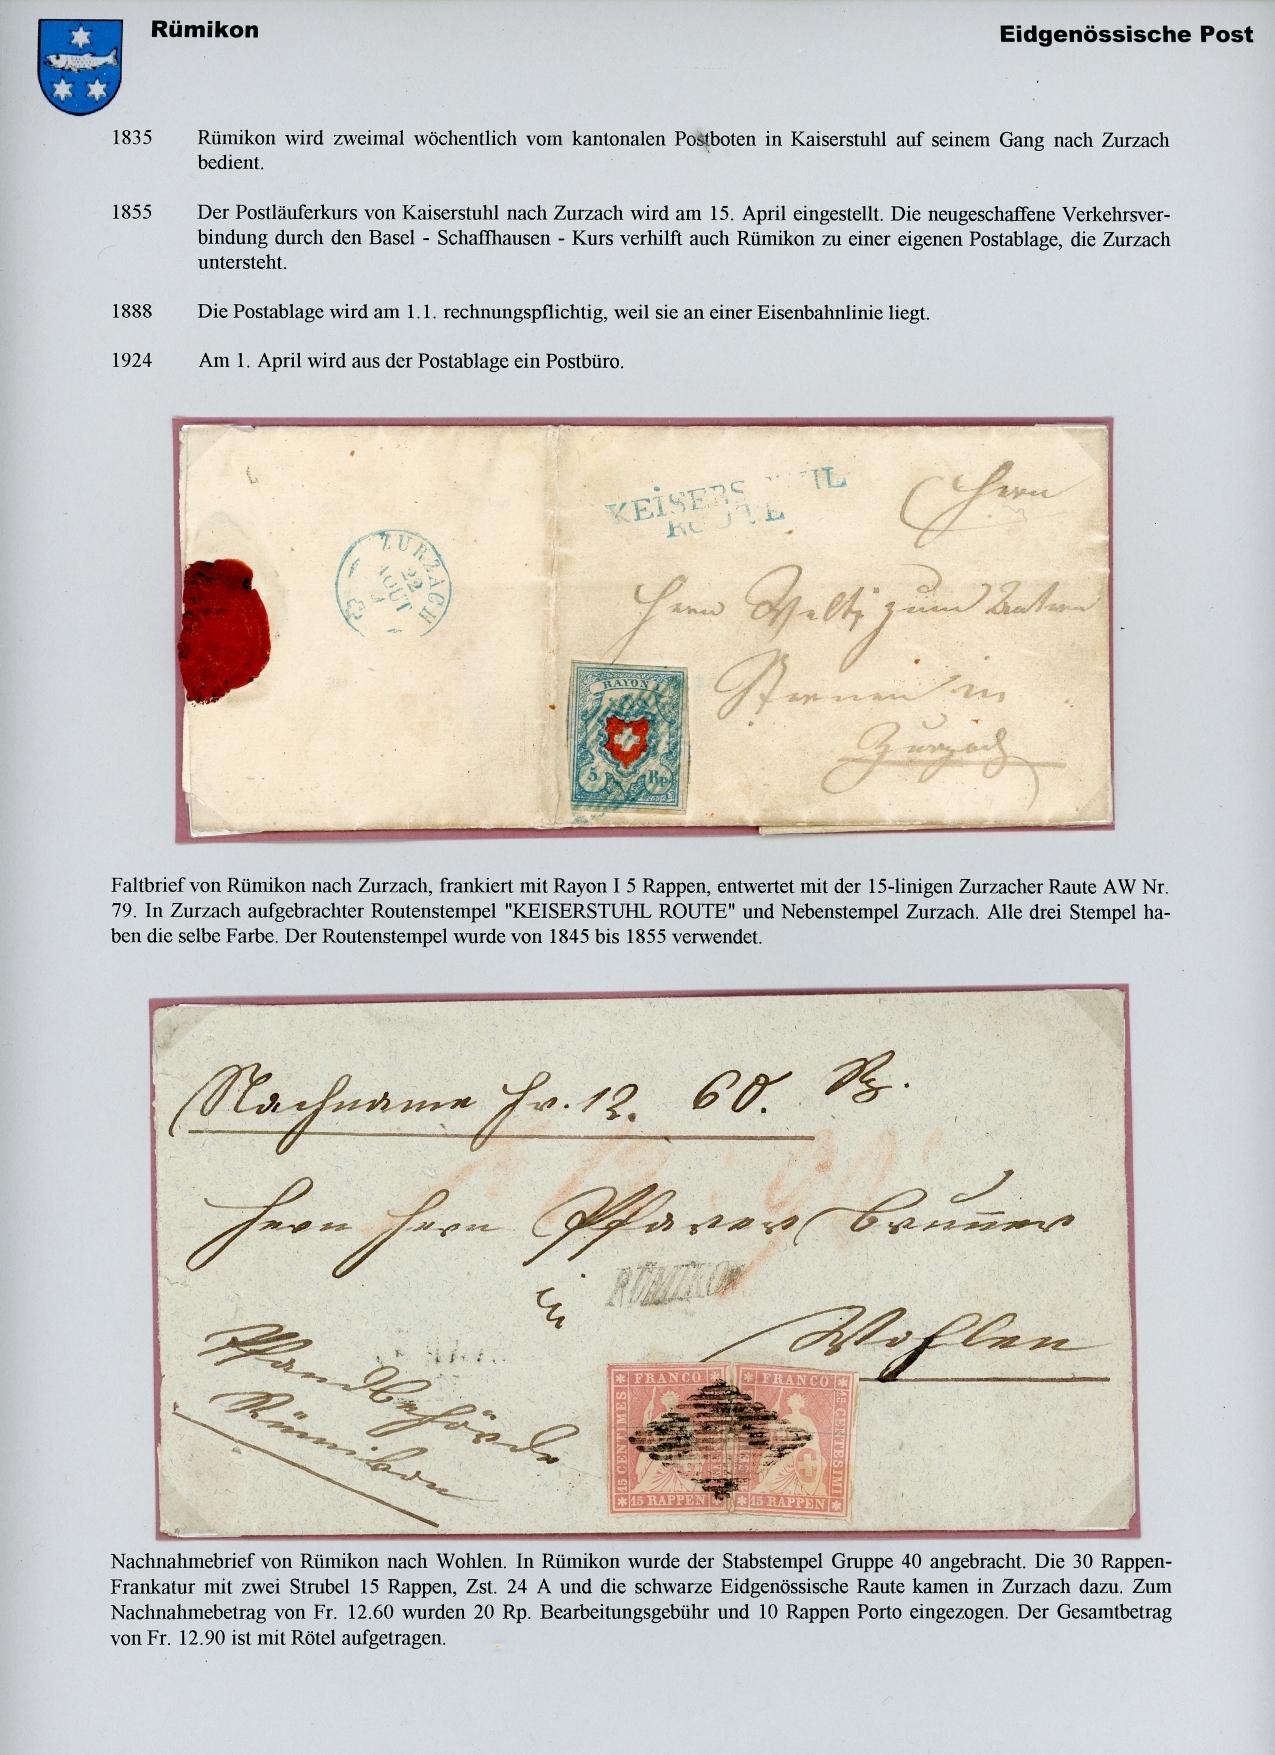 Rümikon
Eidgenössische Post
1835 Rümikon wird zweimal wöchentlich vom kantonalen Postboten in Kaiserstuhl auf seinem Gang nach Zurzach
bedient.
1855 Der Postläuferkurs von Kaiserstuhl nach Zurzach wird am 15. April eingestellt. Die neugeschaffene Verkehrsver-
bindung durch den Basel - Schaffhausen - Kurs verhilft auch Rümikon zu einer eigenen Postablage, die Zurzach
untersteht.
1888 Die Postablage wird am 1.1. rechnungspflichtig, weil sie an einer Eisenbahnlinie liegt.
1924 Am 1. April wird aus der Postablage ein Postbüro.
ROUTE
ZURZACH
22
AOUT
Herrn
Herrn Welti zum
Sternen in
Zurzach
RAYON I
5 Rp.
Faltbrief von Rümikon nach Zurzach, frankiert mit Rayon I 5 Rappen, entwertet mit der 15-linigen Zurzacher Raute AW Nr.
79. In Zurzach aufgebrachter Routenstempel "KEISERSTUHL ROUTE" und Nebenstempel Zurzach. Alle drei Stempel ha-
ben die selbe Farbe. Der Routenstempel wurde von 1845 bis 1855 verwendet.
Nachname fr. 12. 60. Rp.
Herrn Herrn Pfarrer Brunner
in
RÜMIKON
Wohlen
Pfandbehörde
Rümikon
FRANCO FRANCO
15 CENTIMES
15 CENTESIMI
15 RAPPEN 15 RAPPEN
Nachnahmebrief von Rümikon nach Wohlen. In Rümikon wurde der Stabstempel Gruppe 40 angebracht. Die 30 Rappen-
Frankatur mit zwei Strubel 15 Rappen, Zst. 24 A und die schwarze Eidgenössische Raute kamen in Zurzach dazu. Zum
Nachnahmebetrag von Fr. 12.60 wurden 20 Rp. Bearbeitungsgebühr und 10 Rappen Porto eingezogen. Der Gesamtbetrag
von Fr. 12.90 ist mit Rötel aufgetragen.